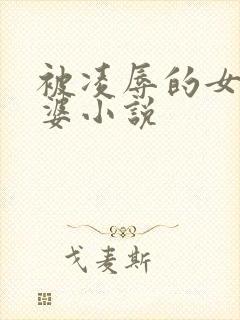 被凌辱的女
婆小説
戈麦斯